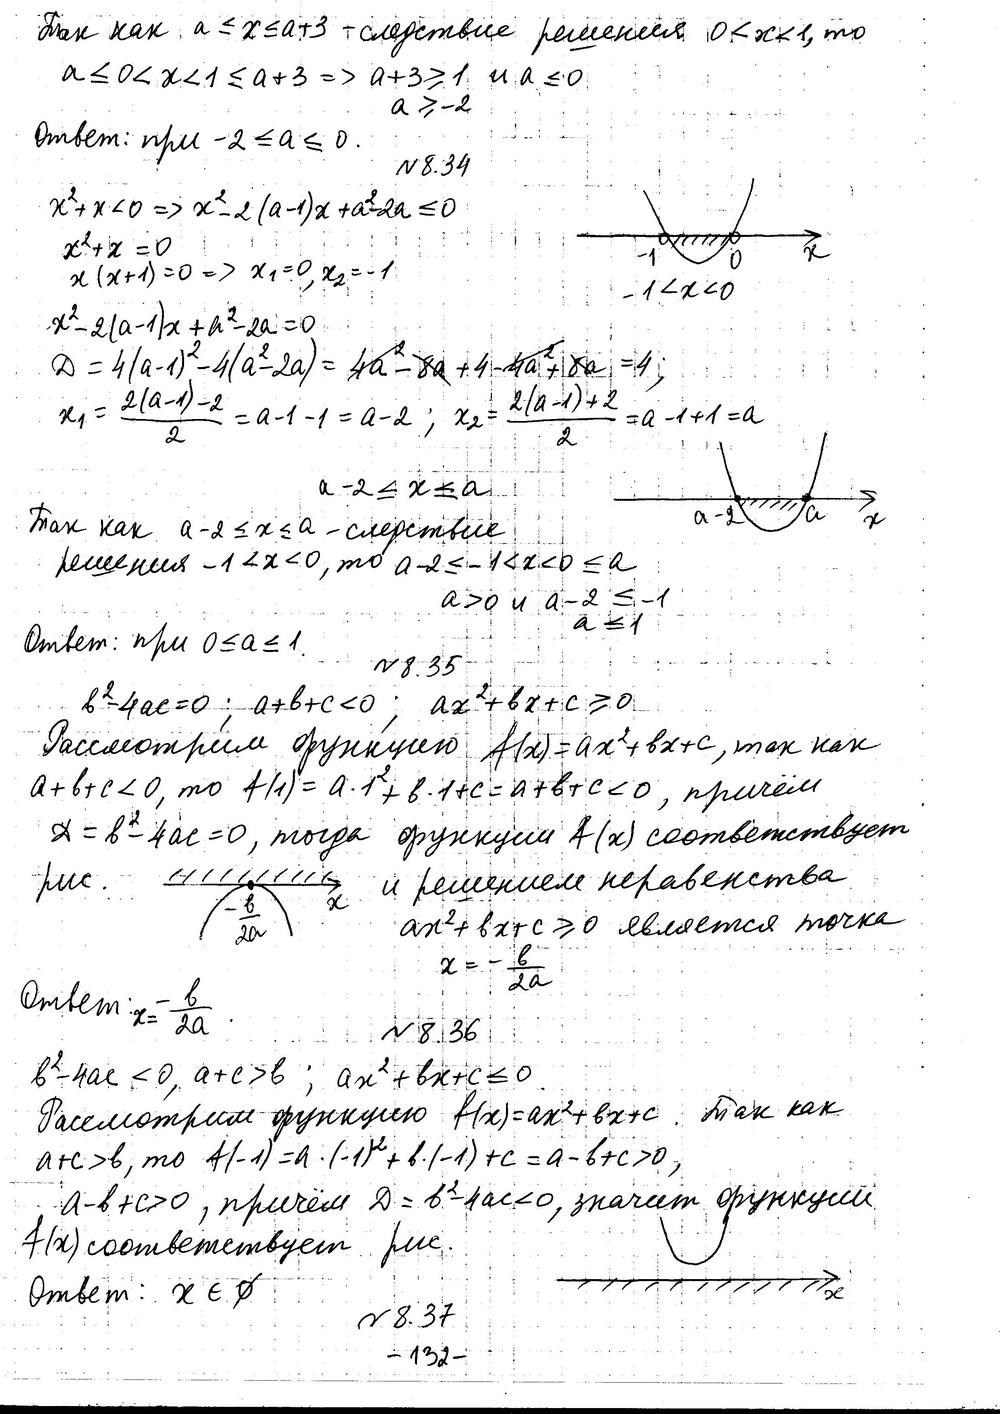 Так как a ≤ x ≤ a+3 – следствие решения 0 < x < 1, то
a ≤ 0 < x < 1 ≤ a+3 => a+3 ⩾ 1 и a ≤ 0
a ⩾ -2
Ответ: при -2 ≤ a ≤ 0.
№8.34
x²+x<0 => x²-2(a-1)x+a²-2a ≤ 0
x²+x=0
x(x+1)=0 => x₁=0, x₂=-1
-1 0 x
-1<x<0
x²-2(a-1)x+a²-2a=0
D = 4(a-1)²-4(a²-2a) = 4a²-8a+4-4a²+8a = 4;
x₁ = (2(a-1)-2)/2 = a-1-1 = a-2 ; x₂ = (2(a-1)+2)/2 = a-1+1 = a
a-2 ≤ x ≤ a
a-2 a x
Так как a-2 ≤ x ≤ a – следствие
решения -1<x<0, то a-2 ≤ -1<x<0 ≤ a
a>0 и a-2 ≤ -1
a ≤ 1
Ответ: при 0 ≤ a ≤ 1.
№8.35
b²-4ac=0 ; a+b+c<0 ; ax²+bx+c ⩾ 0
Рассмотрим функцию f(x)=ax²+bx+c, так как
a+b+c<0, то f(1)=a·1²+b·1+c=a+b+c<0, причём
D=b²-4ac=0, тогда функции f(x) соответствует
рис. -b/2a x и решением неравенства
ax²+bx+c ⩾ 0 является точка
x = -b/2a
Ответ: x = -b/2a.
№8.36
b²-4ac<0, a+c>b ; ax²+bx+c ≤ 0
Рассмотрим функцию f(x)=ax²+bx+c. Так как
a+c>b, то f(-1)=a·(-1)²+b·(-1)+c=a-b+c>0,
a-b+c>0, причём D=b²-4ac<0, значит функции
f(x) соответствует рис.
x
Ответ: x ∈ ∅
№8.37
-132-